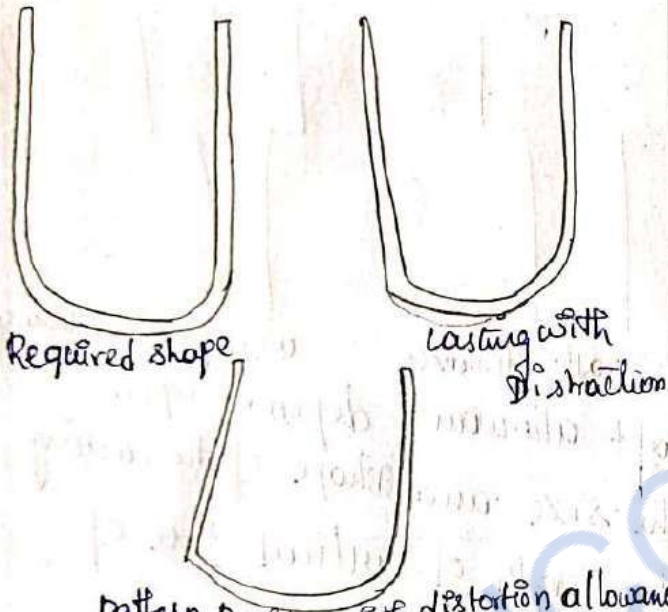 Required shape
Casting with
Distraction
Pattern distortion allowan